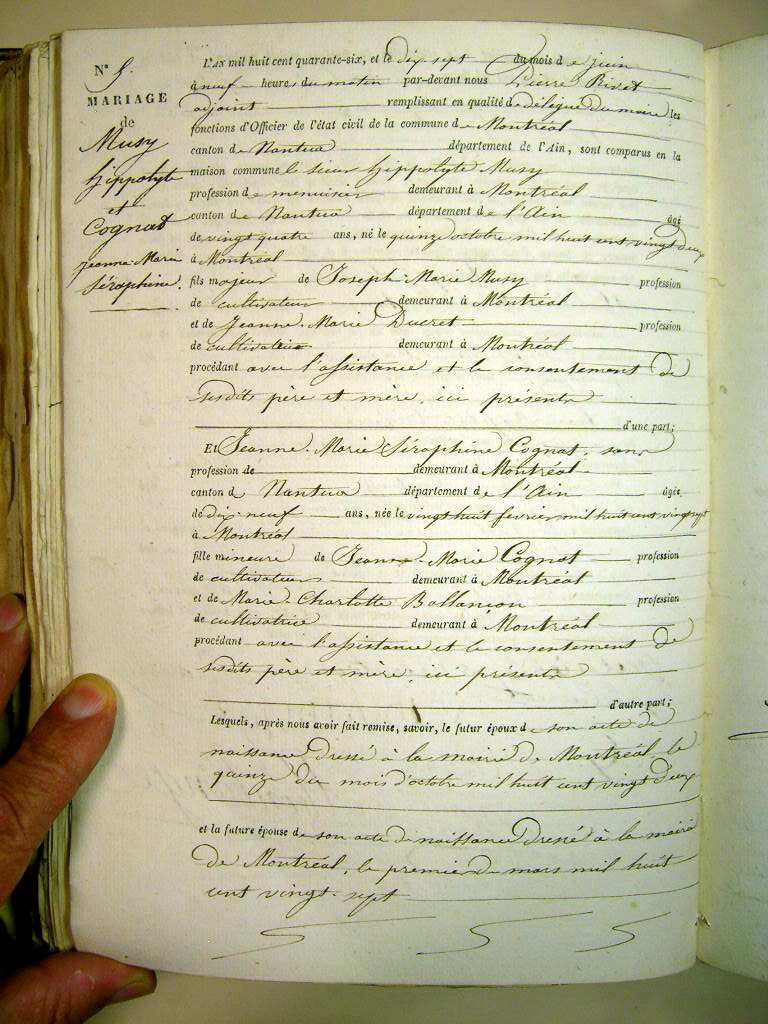 N° 5.
MARIAGE
de
Musy
hippolyte
et
Cognat
Jeanne-Marie
Séraphine.
L'AN mil huit cent quarante-six, et le dix sept du mois de juin
à neuf heures du matin par-devant nous Pierre Rivet
adjoint remplissant en qualité de délégué du maire les
fonctions d'Officier de l'état civil de la commune de Montréal
canton de Nantua département de l'Ain, sont comparus en la
maison commune le sieur hippolyte Musy
profession de menuisier demeurant à Montréal
canton de Nantua département de l'Ain âgé
de vingt quatre ans, né le quinze octobre mil huit cent vingt deux
à Montréal
fils majeur de Joseph-Marie Musy profession
de cultivateur demeurant à Montréal
et de Jeanne-Marie Ducret profession
de cultivatrice demeurant à Montréal
procédant avec l'assistance et le consentement de
susdits père et mère, ici présents
d'une part;
Et Jeanne-Marie Séraphine Cognat, sans
profession de demeurant à Montréal
canton de Nantua département de l'Ain âgée
de dix-neuf ans, née le vingt huit fevrier mil huit cent vingt sept
à Montréal
fille mineure de Jean-Marie Cognat profession
de cultivateur demeurant à Montréal
et de Marie-Charlotte Ballançon profession
de cultivatrice demeurant à Montréal
procédant avec l'assistance et le consentement de
susdits père et mère, ici présents
d'autre part;
Lesquels, après nous avoir fait remise, savoir, le futur époux de son acte de
naissance dressé à la mairie de Montréal le
quinze du mois d'octobre mil huit cent vingt deux
et la future épouse de son acte de naissance dressé à la mairie
de Montréal, le premier de mars mil huit
cent vingt-sept